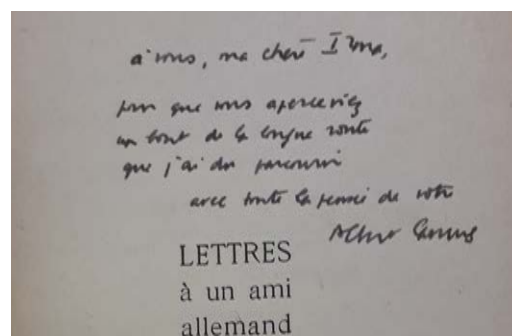 à vous, ma chère Irma,
pour que vous aperceviez
un bout de la longue route
que j'ai dû parcourir
avec toute la pensée de votre
Albert Camus
LETTRES
à un ami
allemand